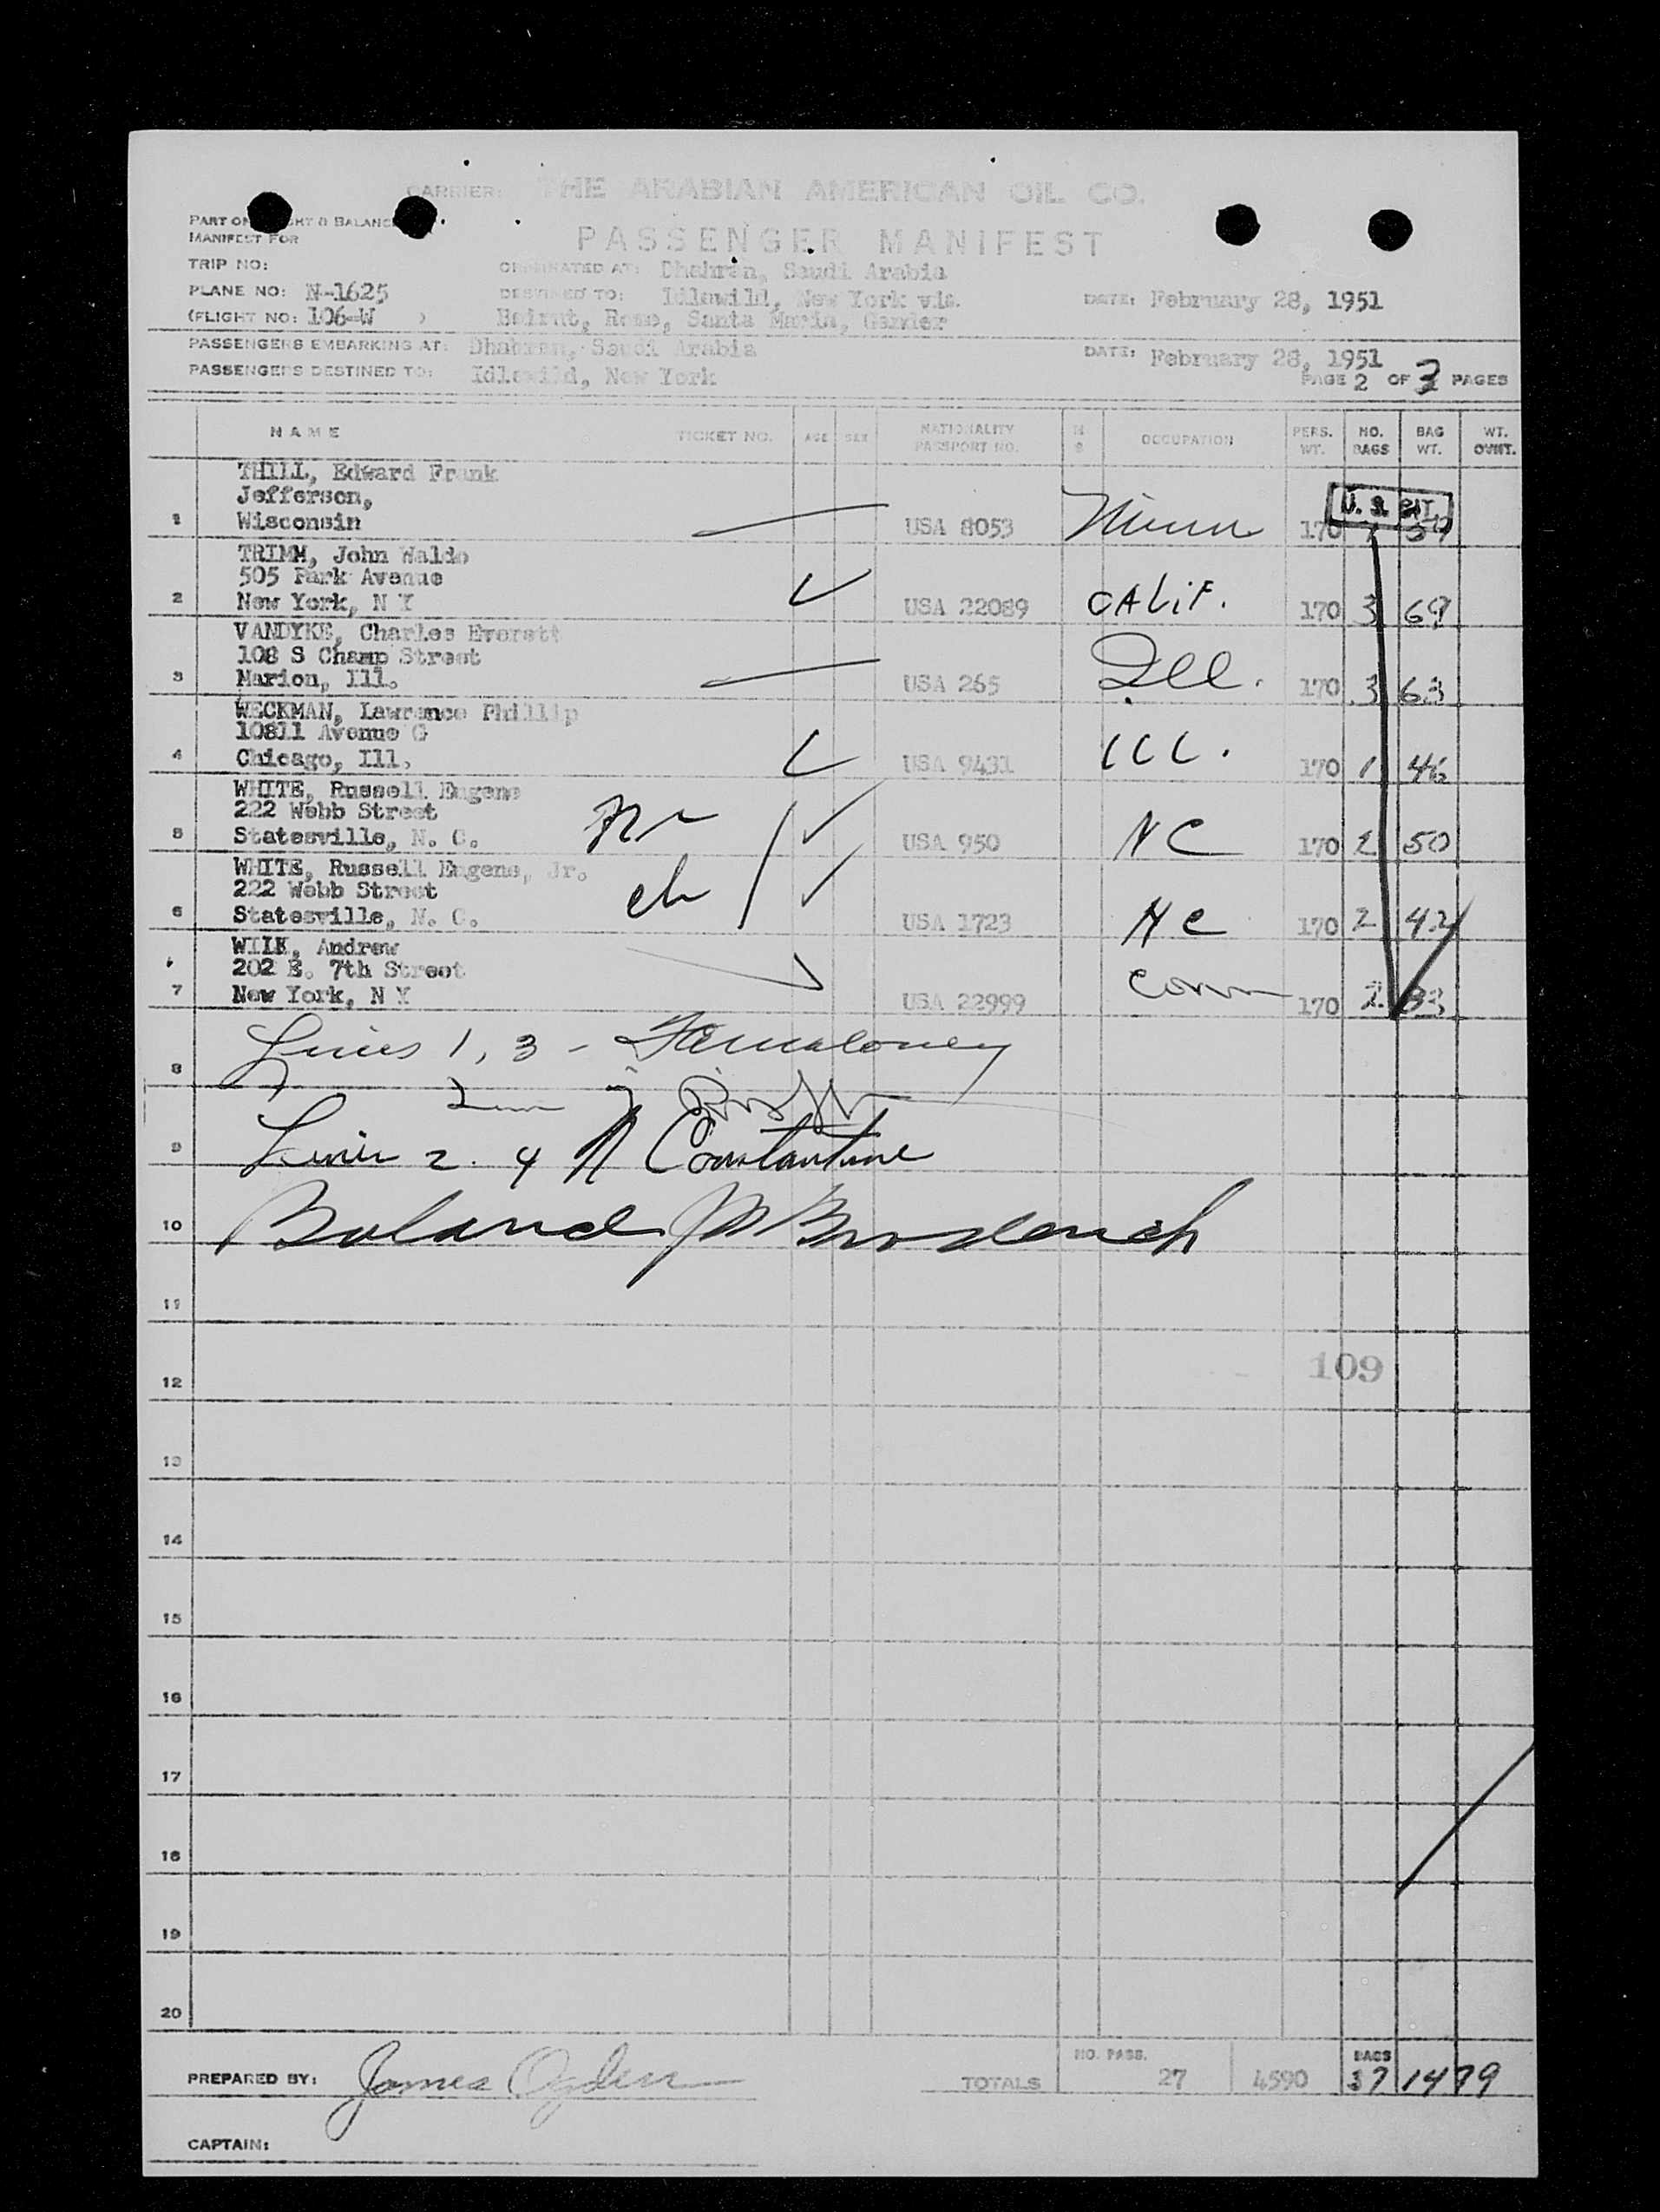 CARRIER: THE ARABIAN AMERICAN OIL CO.
PART OF WEIGHT & BALANCE
MANIFEST FOR
PASSENGER MANIFEST
TRIP NO:
ORIGINATED AT: Dhahran, Saudi Arabia
PLANE NO: N-1625
DESTINED TO: Idlewild, New York via.
DATE: February 28, 1951
(FLIGHT NO: 106-W )
Beirut, Rome, Santa Maria, Gander
PASSENGERS EMBARKING AT: Dhahran, Saudi Arabia
DATE: February 28, 1951
PASSENGERS DESTINED TO: Idlewild, New York
PAGE 2 OF 3 PAGES
NAME TICKET NO. AGE SEX NATIONALITY PASSPORT NO. OCCUPATION PERS. WT. NO. BAGS BAG WT. WT. OVWT.
THILL, Edward Frank
Jefferson,
U. S. CIT.
1 Wisconsin USA 8053 Minn 170
TRIMM, John Waldo
505 Park Avenue
2 New York, N Y USA 22089 CALIF. 170 3 69
VANDYKE, Charles Everett
108 S Champ Street
3 Marion, Ill. USA 265 Ill. 170 3 63
WECKMAN, Lawrence Phillip
10811 Avenue G
4 Chicago, Ill. USA 9431 ILL. 170 1 46
WHITE, Russell Eugene
222 Webb Street
5 Statesville, N. C. USA 950 NC 170 2 50
WHITE, Russell Eugene, Jr.
222 Webb Street
6 Statesville, N. C. ch USA 1723 NC 170 2 42
WILK, Andrew
202 E. 7th Street
7 New York, N Y USA 22999 Conn 170 2 83
8 Lines 1, 3 -
9 Lines 2. 4 N Constantine
10
11
12 109
13
14
15
16
17
18
19
20
PREPARED BY: James Ogden
TOTALS NO. PASS. 27 4590 BAGS 37 1479
CAPTAIN: